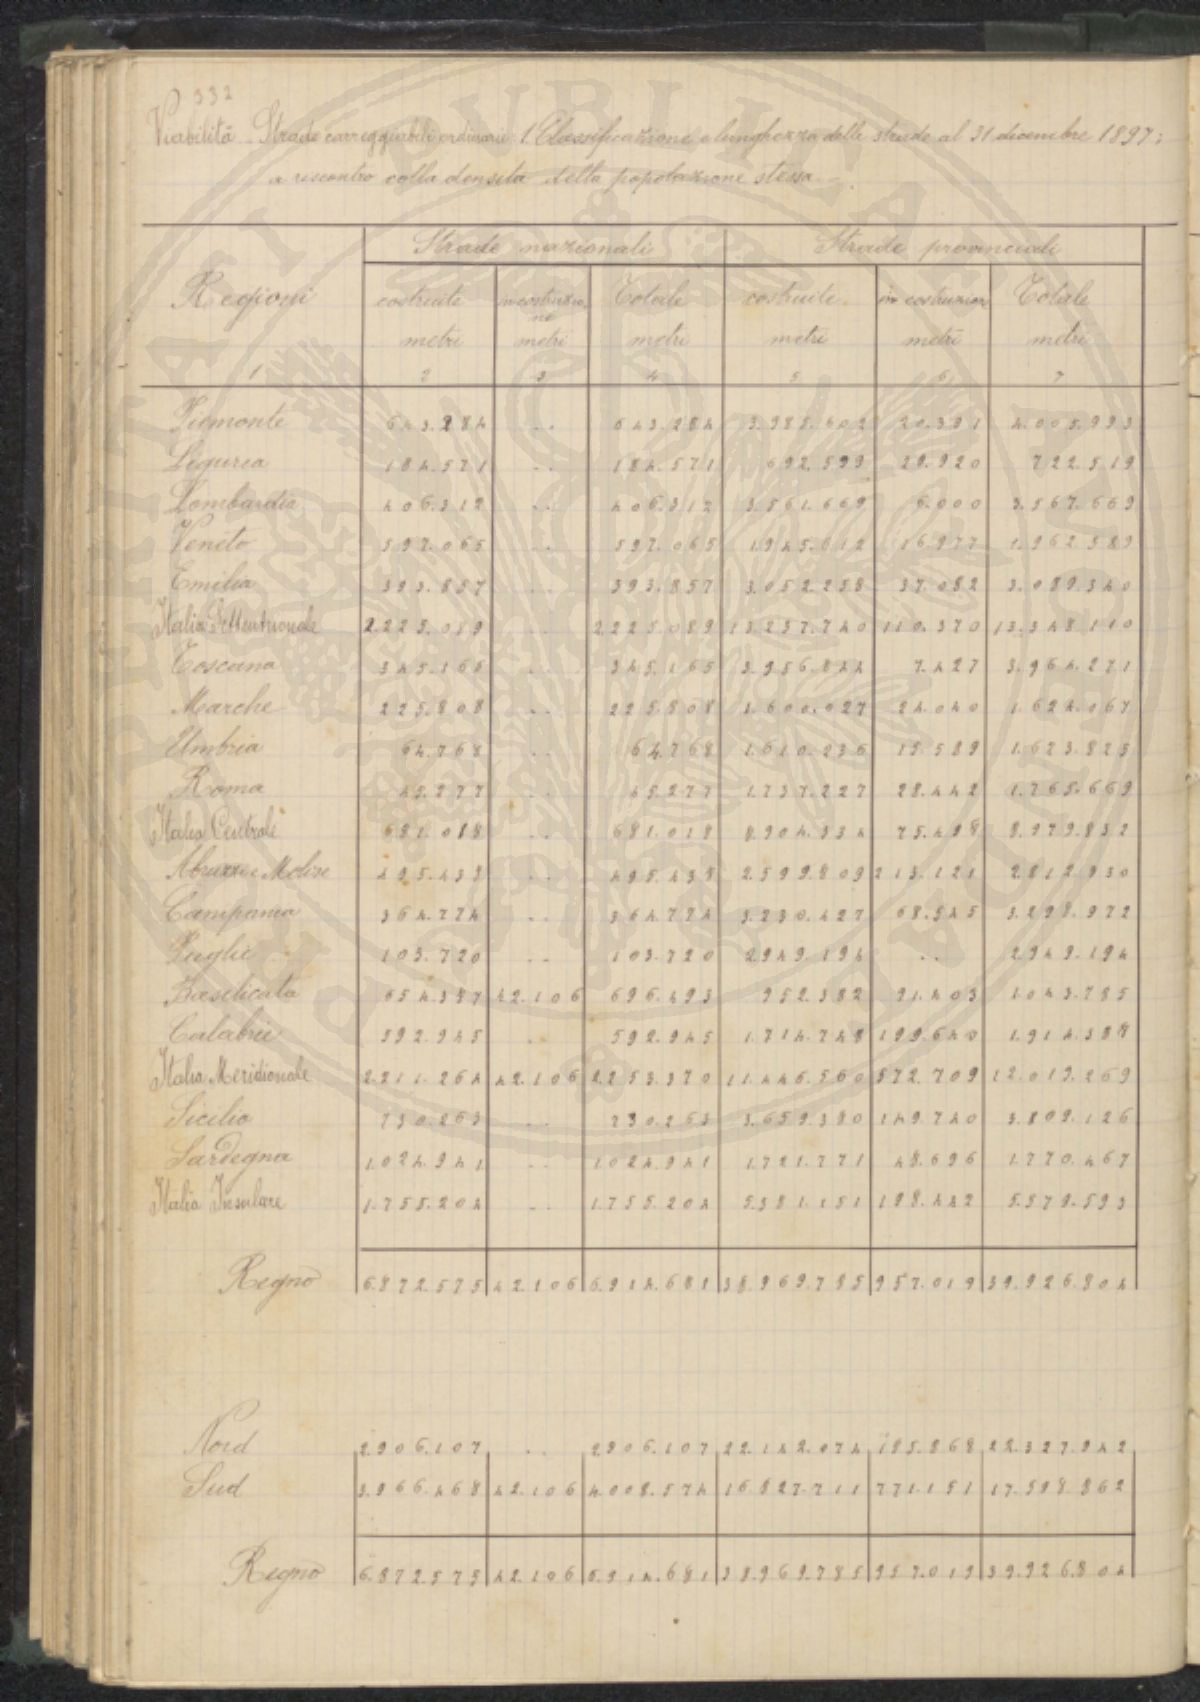 332
Viabilità - Strade carreggiabili ordinarie: 1 Classificazione e lunghezza delle strade al 31 dicembre 1897:
a riscontro colla densità della popolazione stessa -
Strade nazionali Strade provinciali
Regioni costruite in costruzio Totale costruite in costruzion Totale
ne
metri metri metri metri metri metri
1 2 3 4 5 6 7
Piemonte 643.284 .. 643.284 3.985.602 20.391 4.005.993
Liguria 184.571 .. 184.571 692.599 29.920 722.519
Lombardia 406.312 .. 406.312 3.561.669 6.000 3.567.669
Veneto 597.065 .. 597.065 1.945.612 16.977 1.962.589
Emilia 393.857 .. 393.857 3.052.258 37.082 3.089.340
Italia Settentrionale 2.225.089 .. 2.225.089 13.237.740 110.370 13.348.110
Toscana 345.165 .. 345.165 3.956.844 7.427 3.964.271
Marche 225.808 .. 225.808 1.600.027 24.040 1.624.067
Umbria 64.768 .. 64.768 1.610.236 15.589 1.625.825
Roma 45.277 .. 45.277 1.737.227 28.442 1.765.669
Italia Centrale 681.018 .. 681.018 8.904.334 75.498 8.979.832
Abruzzi e Molise 495.438 .. 495.438 2.599.809 213.121 2.812.930
Campania 364.774 .. 364.774 3.230.427 68.545 3.298.972
Puglie 103.720 .. 103.720 2.949.194 .. 2.949.194
Basilicata 654.387 42.106 696.493 952.382 91.403 1.043.785
Calabrie 592.945 .. 592.945 1.714.748 199.640 1.914.388
Italia Meridionale 2.211.264 42.106 2.253.370 11.446.560 572.709 12.019.269
Sicilia 730.263 .. 730.263 3.659.380 149.746 3.809.126
Sardegna 1.024.941 .. 1.024.941 1.721.771 48.696 1.770.467
Italia Insulare 1.755.204 .. 1.755.204 5.381.151 198.442 5.579.593
Regno 6.872.575 42.106 6.914.681 38.969.785 957.019 39.926.804
Nord 2.906.107 .. 2.906.107 22.142.074 185.868 22.327.942
Sud 3.966.468 42.106 4.008.574 16.827.711 771.151 17.598.862
Regno 6.872.575 42.106 6.914.681 38.969.785 957.019 39.926.804